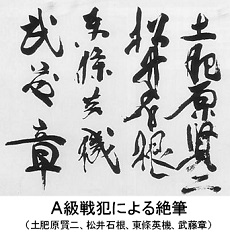 土肥原賢二
松井石根
東條英機
武藤章
A級戦犯による絶筆
（土肥原賢二、松井石根、東條英機、武藤章）